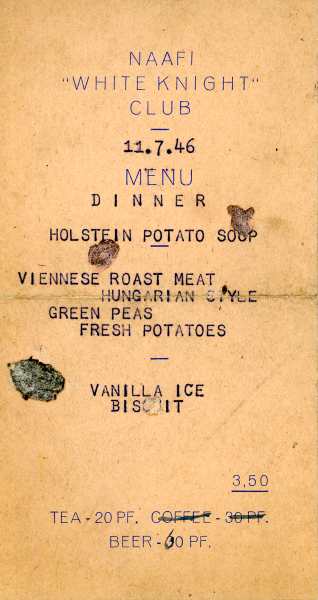 NAAFI
"WHITE KNIGHT"
CLUB
11.7.46
MENU
DINNER
HOLSTEIN POTATO SOUP
VIENNESE ROAST MEAT
HUNGARIAN STYLE
GREEN PEAS
FRESH POTATOES
VANILLA ICE
BISCUIT
3,50
TEA - 20 PF. COFFEE - 30 PF.
BEER - 60 PF.